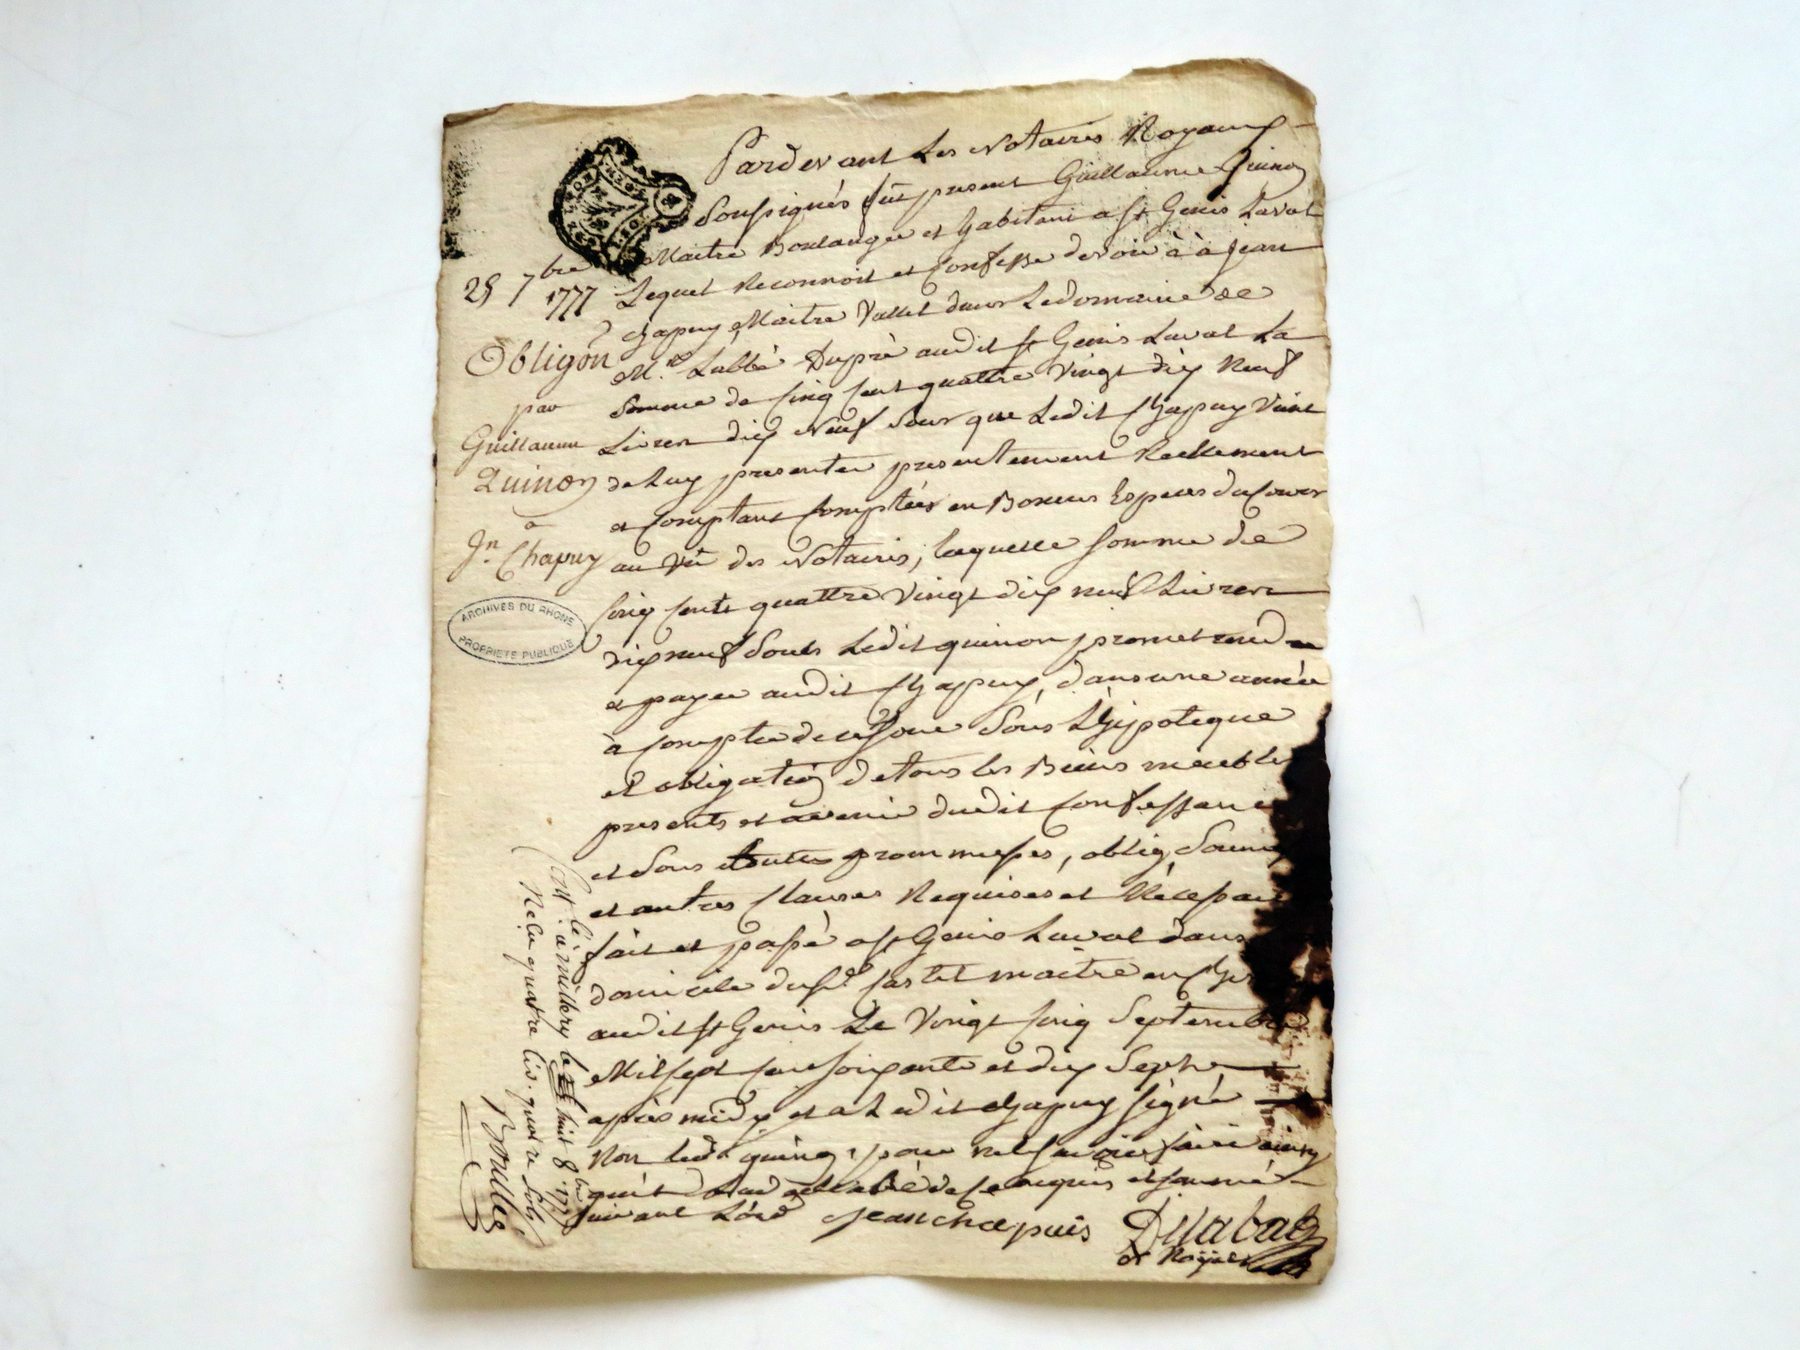 Pardevant Les Notaires Royaux
Soussignés fût present Guillaume Quinon
Maitre Boulanger et habitant a St Genis Laval
Lequel Reconnoit et Confesse devoir à à jean
chapuy Maitre Vallet dans Le domaine de
M.r Labbé Dupré audit St Genis Laval La
Somme de Cinq Cent quattre Vingt dix Neuf
Livres dix Neuf Sous que Ledit Chapuy Vient
de Luy presenter presentement Reellement
et Comptant Comptées en Bonnes Especes du Cours
au Vû des Notaires, laquelle Somme de
Cinq Cents quattre Vingt dix neuf Livres
dix neuf Sous Ledit quinon promet rendre
et payer audit Chapuy, dans une année
à Compter de ce Jour Sous L'hipoteque
et obligation de tous les Biens meubles
presents et avenir dudit Confessant
et Sous toutes prommesses, oblig, Soum
et autres Clauses Requises et
fait et passé a St Genis Laval dans
domicile du Sr. Castel maitre en
audit St Genis Le Vingt Cinq Septembre
Mil sept Cent soixante et dix Sept
après midy et a Ledit Chapuy signé
Non Ledt quinon, pour ne Scavoir faire ainsy
qu'il a declaré de ce requis et sommé
Suivant L'ord jean chapuis Delabat
Nt Royal
25 7bre
1777
Obligõn
par
Guillaume
Quinon
a
Jn. Chapuy
ARCHIVES DU RHONE
PROPRIETE PUBLIQUE
Contlé à millery le huit 8bre 1777
Reçu quatre liv. quatre sols